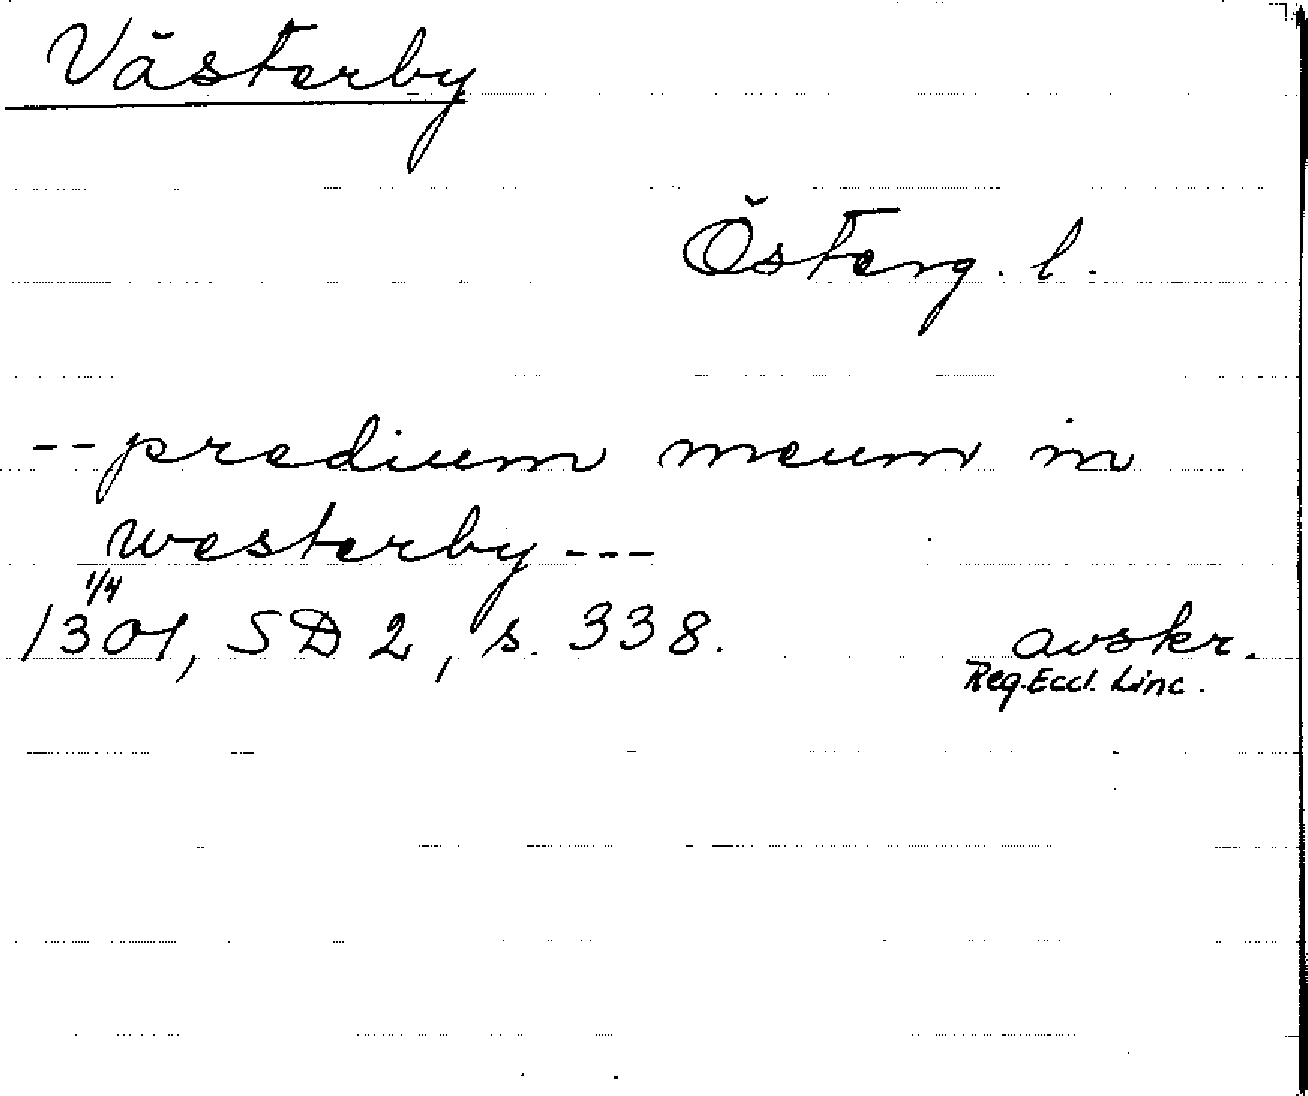 Västerby
Österg. l.
-- predium meum in
westerby ---
1/4
1301, SD 2, s. 338.
avskr.
Reg. Eccl. Linc.